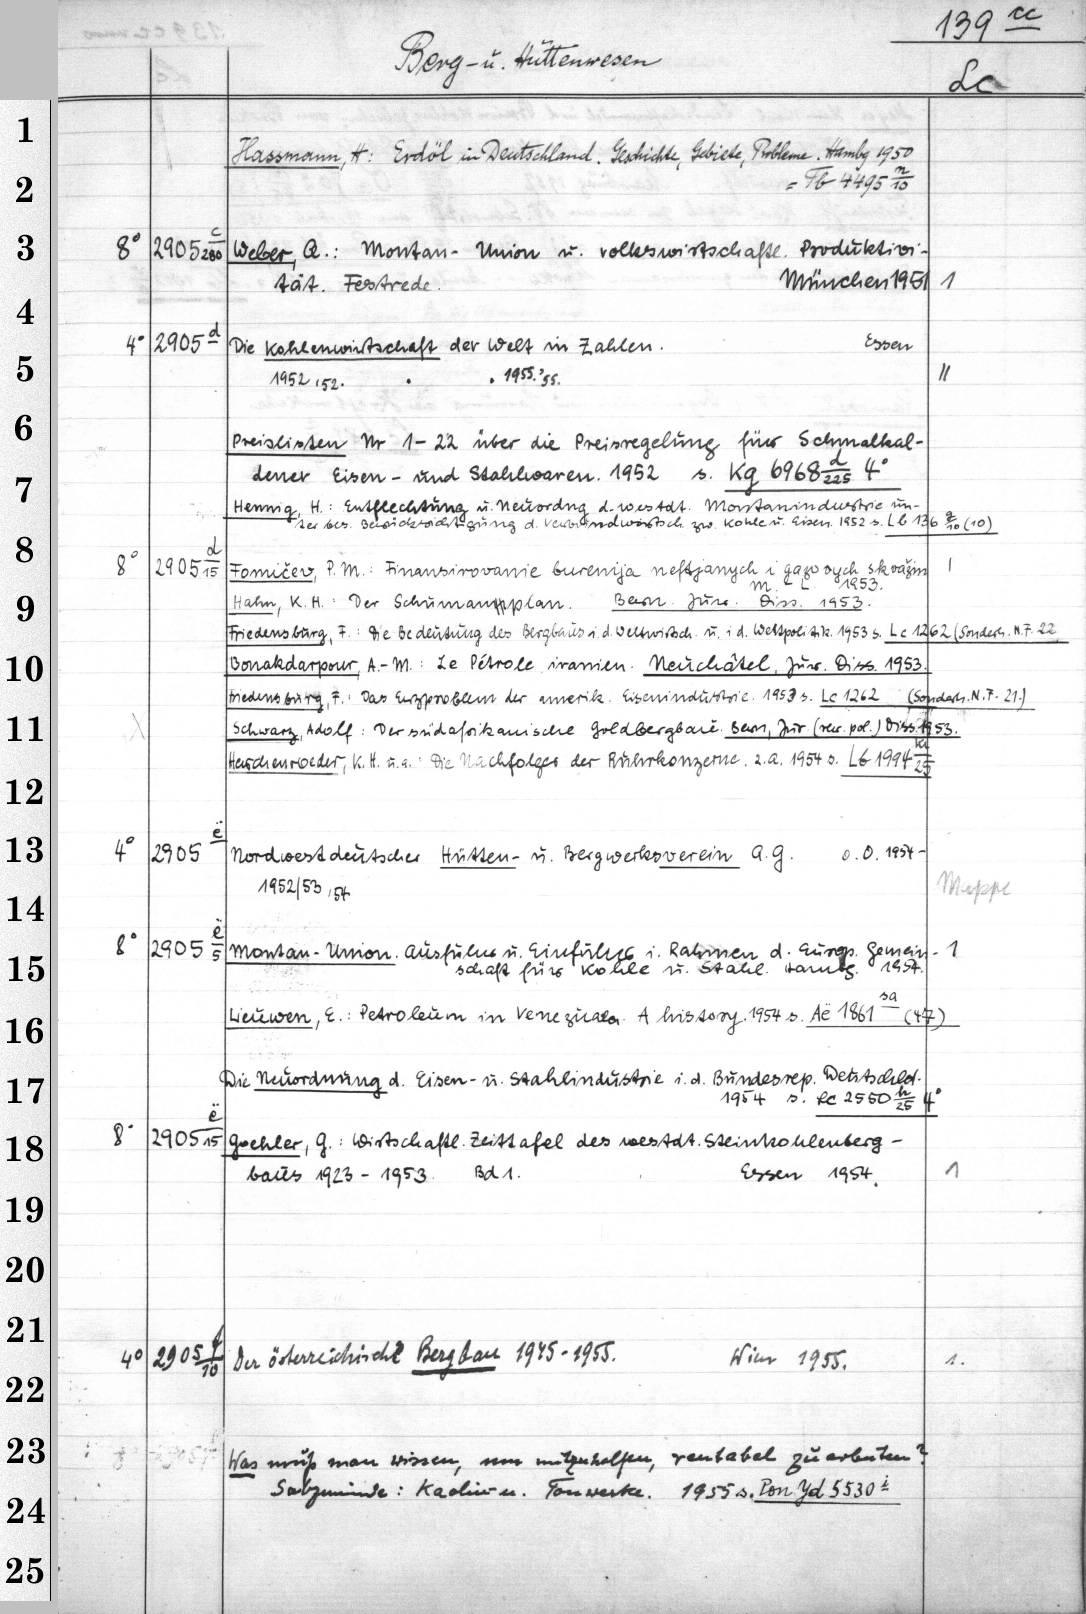 139 cc
Berg- u. Hüttenwesen
Lc
1
Hassmann, H: Erdöl in Deutschland. Geschichte, Gebiete, Probleme. Hambg 1950
2
= Tb 4495 n/10
3
8° 2905 c/280 Weber, A.: Montan-Union u. volkswirtschaftl. Produktivi-
tät. Festrede. München 1951 1
4
4° 2905 d Die Kohlenwirtschaft der Welt in Zahlen. Essen
5
1952, 52. . . 1955. '55. II
6
Preislisten Nr 1-22 über die Preisregelung für Schmalkal-
7
dener Eisen- und Stahlwaren. 1952 s. Kg 6968 d/225 4°
Hennig, H.: Entflechtung u. Neuordng d. westdt. Montanindustrie un-
ter bes. Berücksichtigung d. Verbundwirtsch. zw. Kohle u. Eisen. 1952 s. Lb 136 g/10 (10)
8
8° 2905 d/15 Fomičev, P.M.: Finansirovanie burenija neftjanych i gazovych skvažin 1
M.-L. 1953.
9
Hahn, K.H.: Der Schumanplan. Bern. Jur. Diss. 1953.
Friedensburg, F.: Die Bedeutung des Bergbaus i.d. Weltwirtsch. u. i.d. Weltpolitik. 1953 s. Lc 1262 (Sonderh. N.F. 22
10
Bonakdarpour, A.-M.: Le Pétrole iranien. Neuchâtel, Jur. Diss. 1953.
Friedensburg, F.: Das Erzproblem der amerik. Eisenindustrie. 1953 s. Lc 1262 (Sonderh. N.F. 21.)
11
Schwarz, Adolf: Der südafrikanische Goldbergbau. Bern, Jur. (rer. pol.) Diss. 1953.
Herchenroeder, K.H. u.a.: Die Nachfolger der Ruhrkonzerne. 2.A. 1954 s. Lb 1994 ki/25
12
13
4° 2905 ë Nordwestdeutscher Hütten- u. Bergwerksverein A.G. o.O. 1954-
1952/53, 54 Mappe
14
8° 2905 ë/5 Montan-Union. Ausfuhr u. Einfuhr i. Rahmen d. Europ. Gemein- 1
15
schaft für Kohle u. Stahl. Hambg. 1954.
16
Lieuwen, E.: Petroleum in Venezuela. A history. 1954 s. Aë 1861 sa (47)
17
Die Neuordnung d. Eisen- u. Stahlindustrie i.d. Bundesrep. Deutschld.
1954 s. Lc 2550 h/25 4°
18
8° 2905 ë/15 Goehler, G.: Wirtschaftl. Zeittafel des westdt. Steinkohlenberg-
baus 1923-1953. Bd 1. Essen 1954. 1
19
20
21
4° 2905 f/10 Der österreichische Bergbau 1945-1955. Wien 1955. 1.
22
23
Was muß man wissen, um mitzuhelfen, rentabel zu arbeiten?
24
Kaolin u. Tonwerke. 1955 s. Yd 5530 i
25